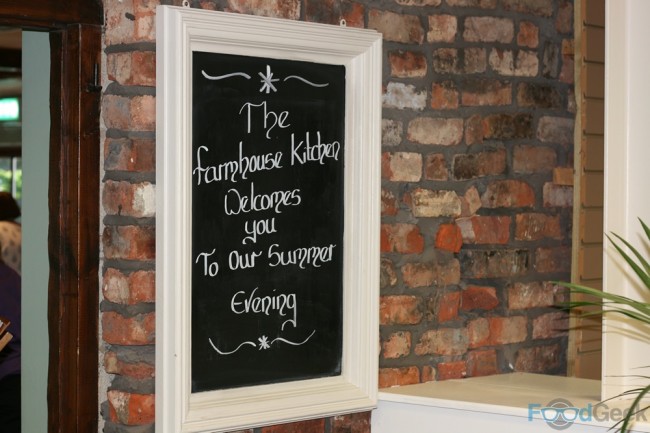 The
Farmhouse Kitchen
Welcomes
you
To Our Summer
Evening
FoodGeek